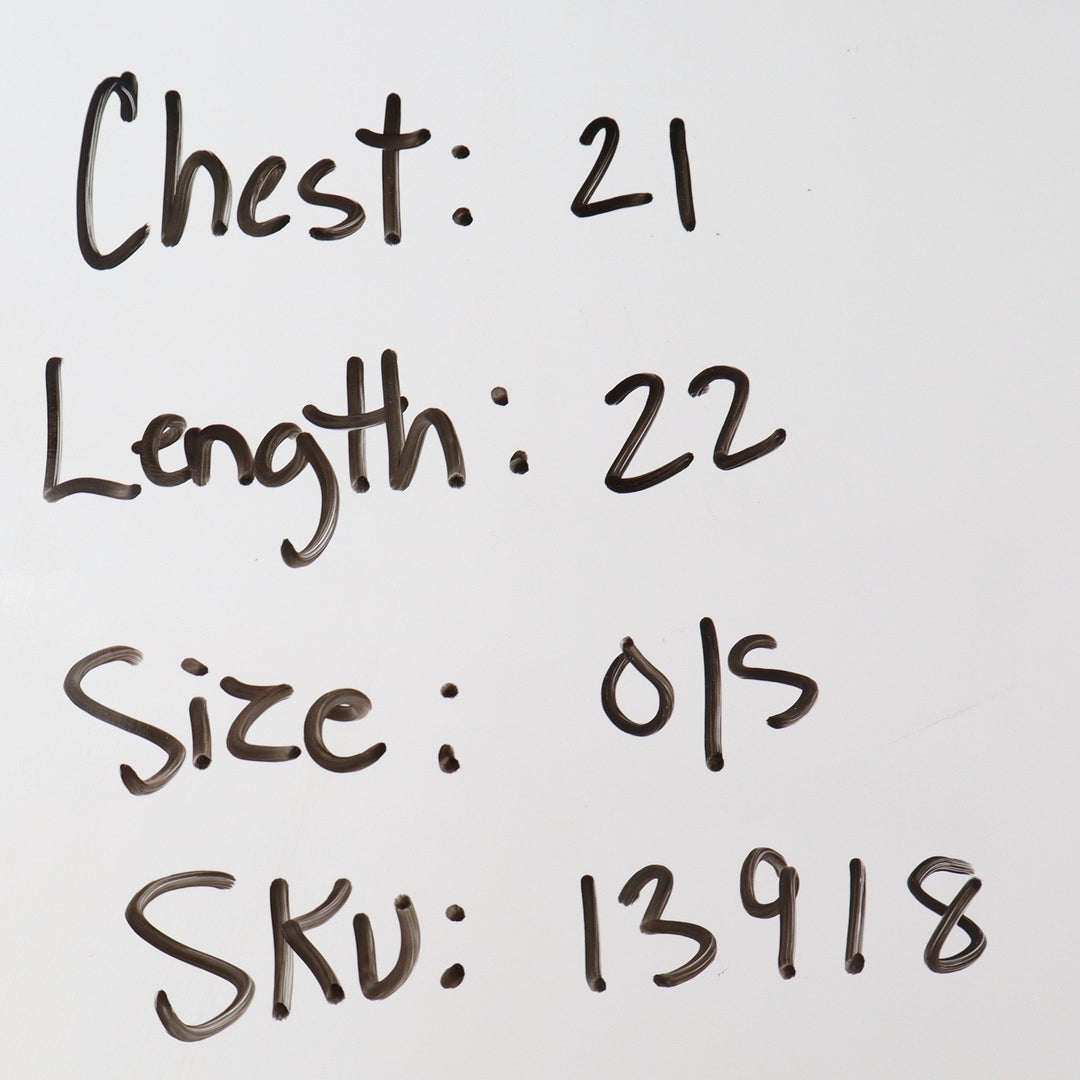 Chest: 21
Length: 22
Size: O/S
SKU: 13918